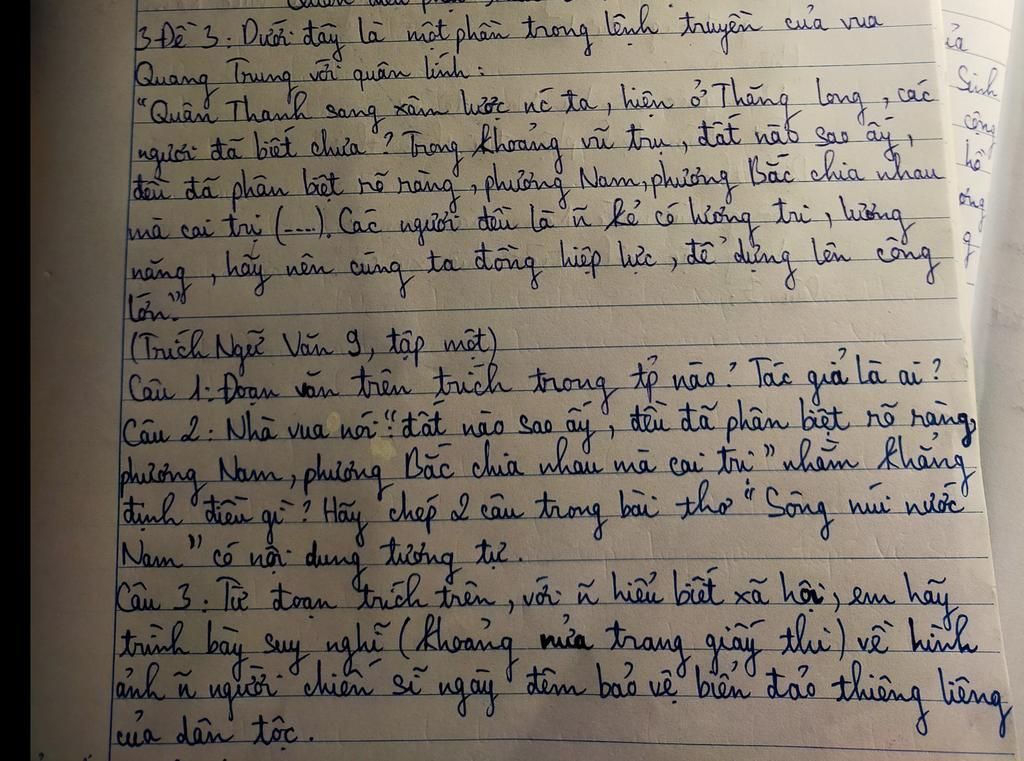 3 Đề 3: Dưới đây là một phần trong lệnh truyền của vua
Quang Trung với quân lính:
"Quân Thanh sang xâm lược nc ta, hiện ở Thăng Long, các
người đã biết chưa? Trong khoảng vũ trụ, đất nào sao ấy,
đều đã phân biệt rõ ràng, phương Nam, phương Bắc chia nhau
mà cai trị (....). Các người đều là ~ kẻ có lương tri, lương
năng, hãy nên cùng ta đồng hiệp lực, để dựng lên công
lớn."
(Trích Ngữ Văn 9, tập một)
Câu 1: Đoạn văn trên trích trong tp nào? Tác giả là ai?
Câu 2: Nhà vua nói "đất nào sao ấy, đều đã phân biệt rõ ràng,
phương Nam, phương Bắc chia nhau mà cai trị" nhằm khẳng
định điều gì? Hãy chép 2 câu trong bài thơ "Sông núi nước
Nam" có nội dung tương tự.
Câu 3: Từ đoạn trích trên, với ~ hiểu biết xã hội, em hãy
trình bày suy nghĩ (khoảng nửa trang giấy thi) về hình
ảnh ~ người chiến sĩ ngày đêm bảo vệ biển đảo thiêng liêng
của dân tộc.
ủa
Sinh
công
hồ
ông
g